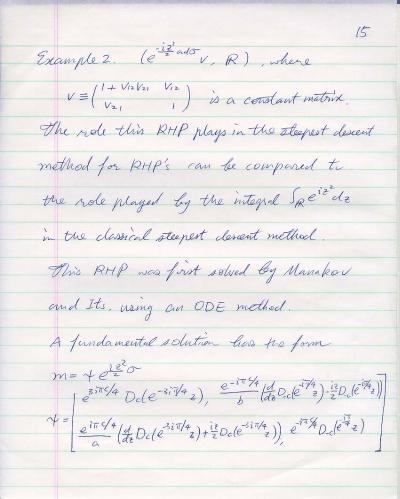 15
Example 2. (e^{-iz²/2 adσ} v, R), where
v ≡ (1 + v₁₂v₂₁  v₁₂
v₂₁  1) is a constant matrix.
The role this RHP plays in the steepest descent
method for RHP's can be compared to
the role played by the integral ∫_R e^{iz²}dz
in the classical steepest descent method.
This RHP was first solved by Manakov
and Its. using an ODE method.
A fundamental solution has the form
m = ψ e^{iz²/2 σ}
ψ = [e^{3iπc/4} D_c(e^{-3iπ/4}z), e^{-iπc/4}/b (d/dz D_c(e^{-iπ/4}z) - iz/2 D_c(e^{-iπ/4}z))
e^{iπc/4}/a (d/dz D_c(e^{-3iπ/4}z) + iz/2 D_c(e^{-3iπ/4}z)), e^{-iπc/4} D_{-c}(e^{-iπ/4}z)]